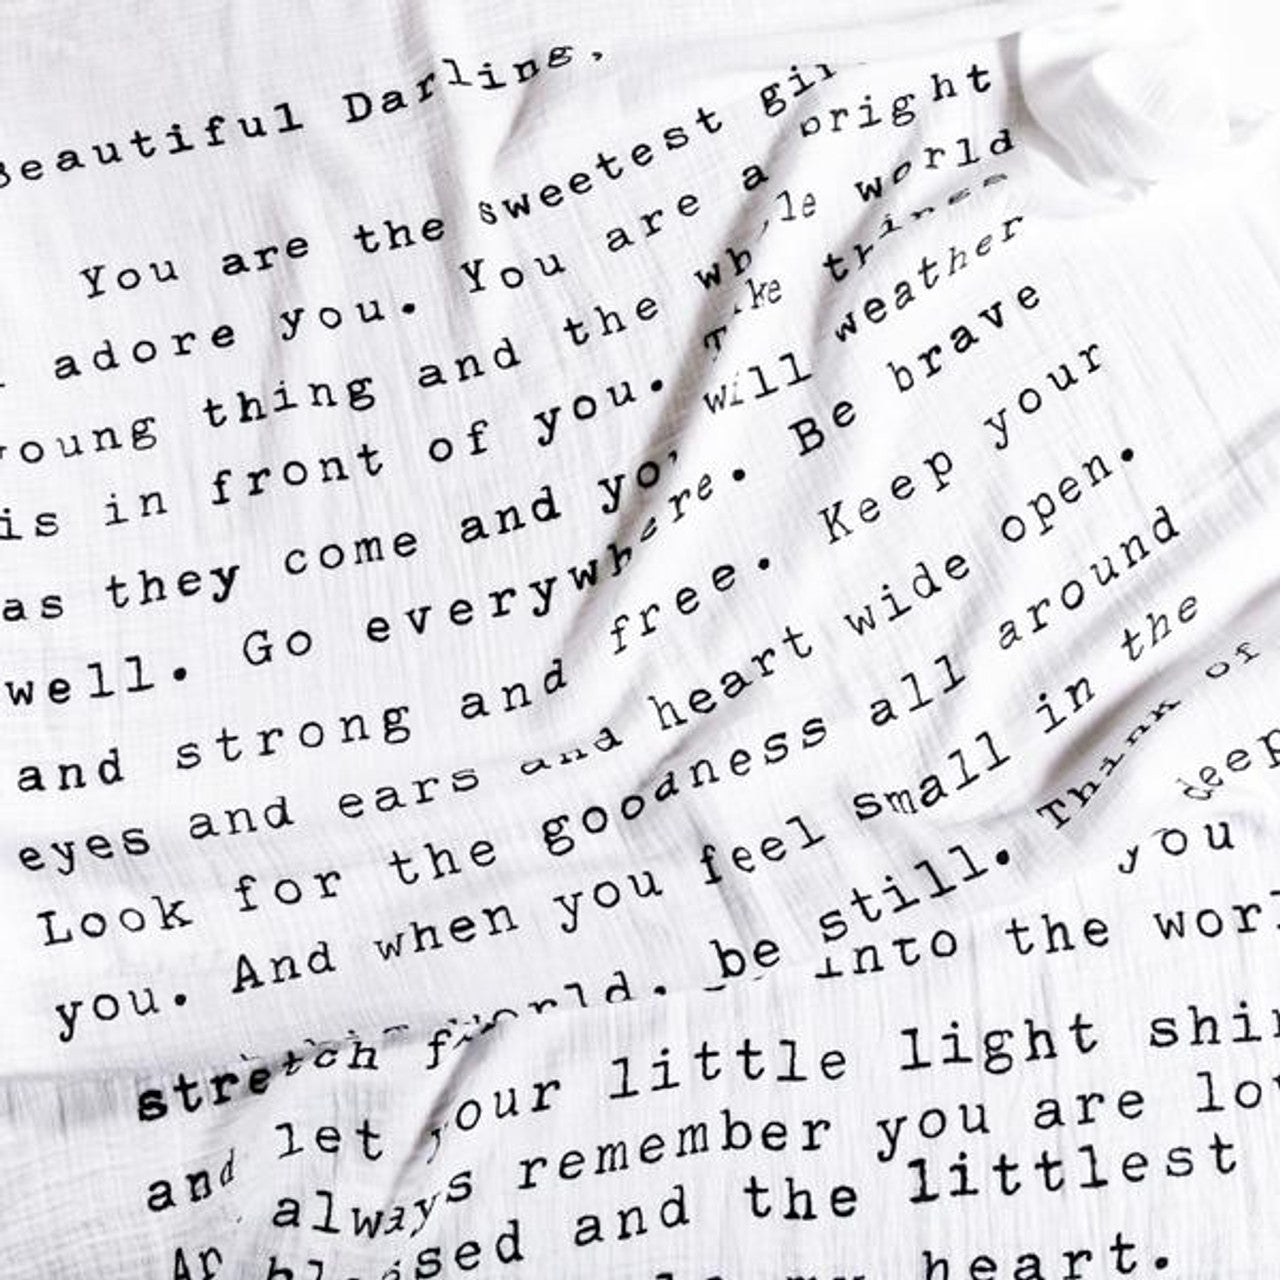 Beautiful Darling,
You are the sweetest
adore you. You are a bright
young thing and the whole world
is in front of you. Take things
as they come and you will weather
well. Go everywhere. Be brave
and strong and free. Keep your
eyes and ears and heart wide open.
Look for the goodness all around
you. And when you feel small in the
world, be still. Think of
deep
you
stretch into the
and let your little light
always remember you are
and the littlest
heart.